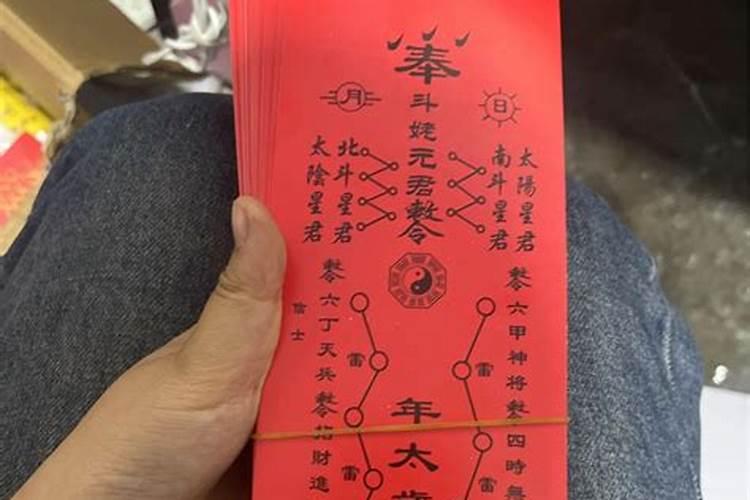 奉
月
日
斗姥元君敕令
太陽星君
南斗星君
北斗星君
太陰星君
敕令六甲神將敕令四時無
雷
雷
年太歲
雷
雷
敕令六丁天兵敕令招財進
信士